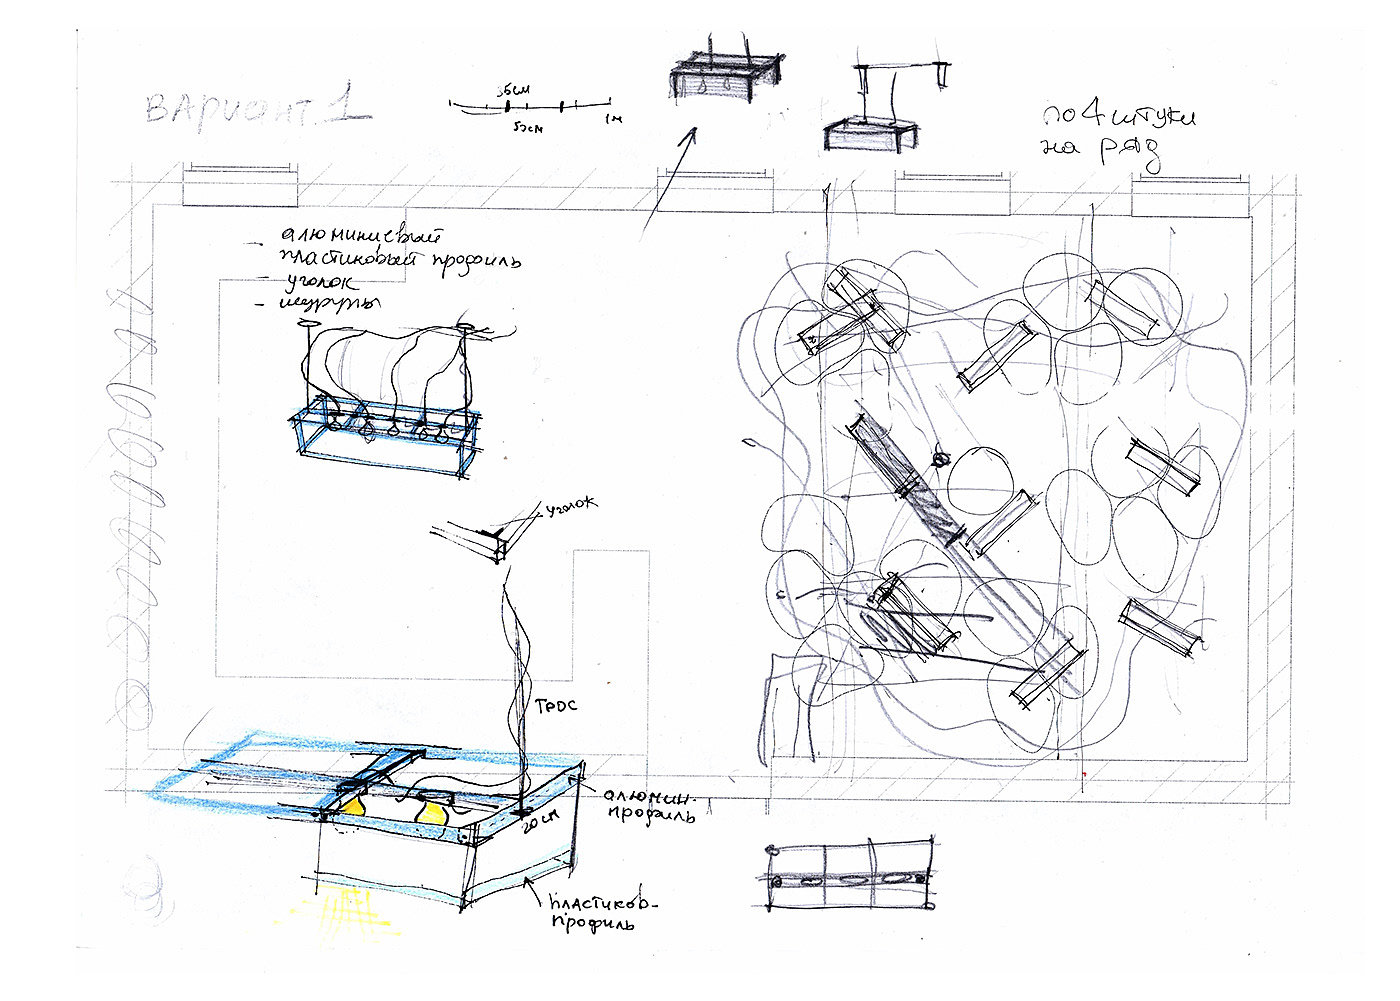 ВАРИАНТ 1
36см
50см
1м
по 4 штуки
на ряд
- алюминиевый
пластиковый профиль
- уголок
- шурупы
уголок
трос
20см
алюмин.
профиль
пластиков-
профиль